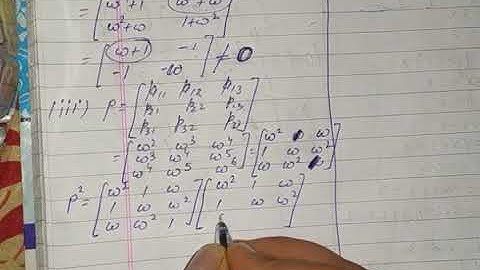 = [ω²+1 ω+ω²
ω²+ω 1+ω²]
= [ω+1 -1
-1 -ω] ≠ 0
(iii) P = [p₁₁ p₁₂ p₁₃
p₂₁ p₂₂ p₂₃
p₃₁ p₃₂ p₃₃]
= [ω² ω³ ω⁴
ω³ ω⁴ ω⁵
ω⁴ ω⁵ ω⁶] = [ω² 1 ω
1 ω ω²
ω ω² 1]
P² = [ω² 1 ω
1 ω ω²
ω ω² 1] [ω² 1 ω
1 ω ω²